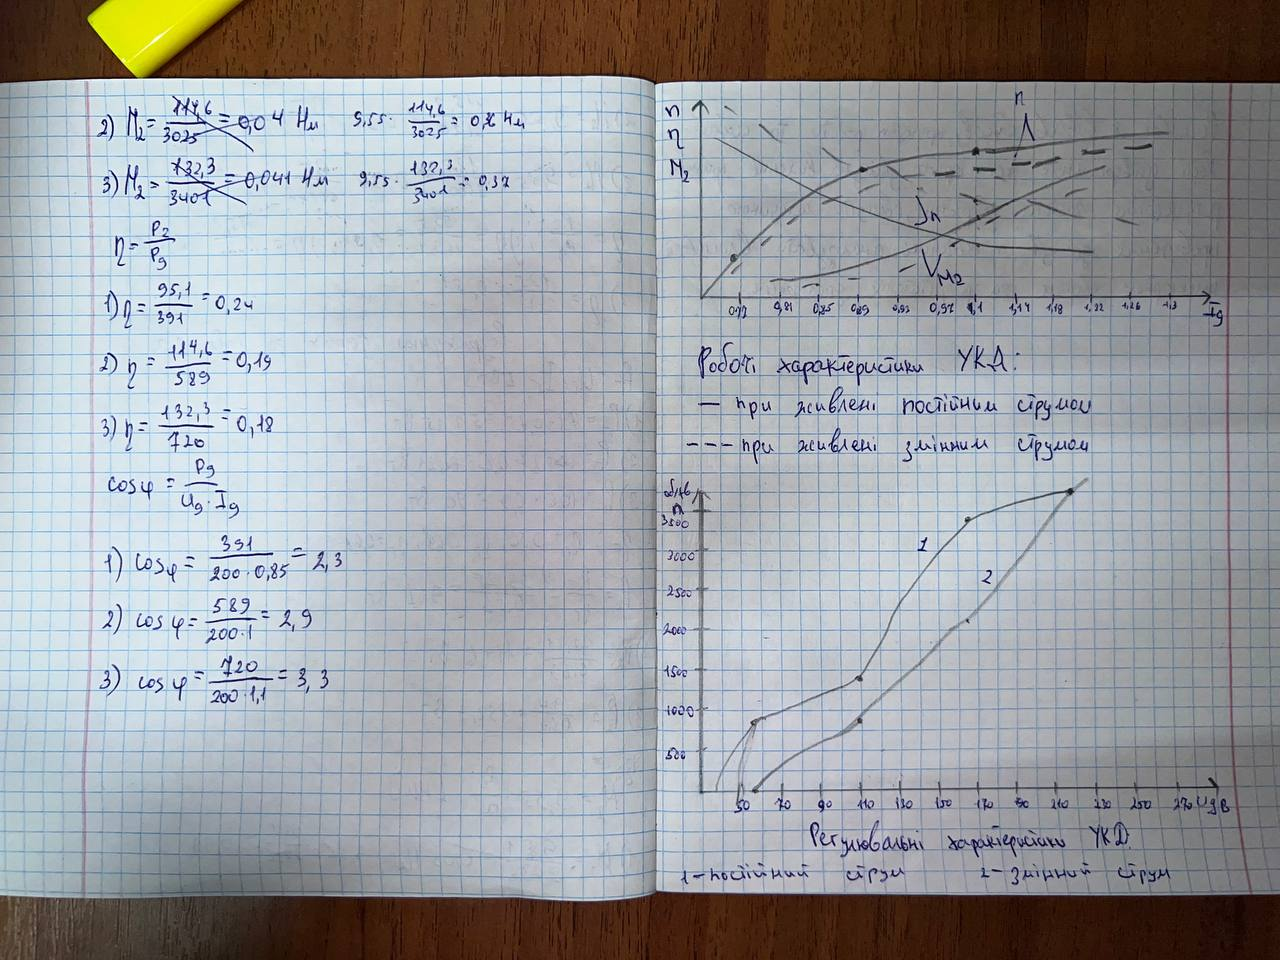 2) M₂ = 114,6/3025 = 0,04 Нм 9,55 · 114,6/3025 = 0,36 Нм
3) M₂ = 132,3/3401 = 0,041 Нм 9,55 · 132,3/3401 = 0,37
η = P₂/Pg
1) η = 95,1/391 = 0,24
2) η = 114,6/589 = 0,19
3) η = 132,3/720 = 0,18
cosφ = Pg/Ug·Ig
1) cosφ = 391/200·0,85 = 2,3
2) cosφ = 589/200·1 = 2,9
3) cosφ = 720/200·1,1 = 3,3
n
η
M₂
η
n
M₂
0,81 0,85 0,89 0,93 0,97 1,1 1,14 1,18 1,22 1,26 1,3 Ig
Робочі характеристики УКД:
— при живлені постійним струмом
--- при живлені змінним струмом
n
3500
3000
2500
2000
1500
1000
500
1
2
50 70 90 110 130 150 170 190 210 230 250 270 Ug В
Регулювальні характеристики УКД
1 – постійний струм 2 – змінний струм